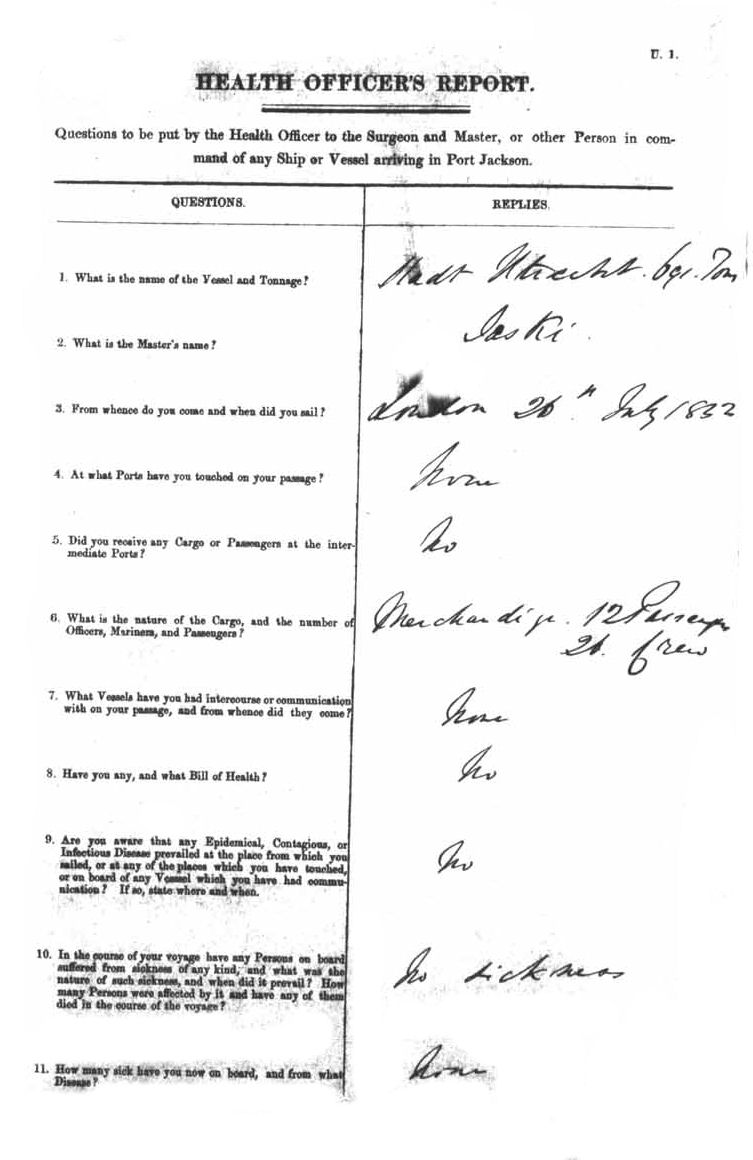 U. 1.
HEALTH OFFICER'S REPORT.
Questions to be put by the Health Officer to the Surgeon and Master, or other Person in com-
mand of any Ship or Vessel arriving in Port Jackson.
QUESTIONS.
REPLIES.
1. What is the name of the Vessel and Tonnage?
Stadt Utrecht. Tons
2. What is the Master's name?
Jaski.
3. From whence do you come and when did you sail?
London 26th July 1832
4. At what Ports have you touched on your passage?
None
5. Did you receive any Cargo or Passengers at the inter-
mediate Ports?
No
6. What is the nature of the Cargo, and the number of
Officers, Mariners, and Passengers?
Merchandize. 12 Passengers
26. Crew
7. What Vessels have you had intercourse or communication
with on your passage, and from whence did they come?
None
8. Have you any, and what Bill of Health?
No
9. Are you aware that any Epidemical, Contagious, or
Infectious Disease prevailed at the place from which you
sailed, or at any of the places which you have touched,
or on board of any Vessel which you have had commu-
nication? If so, state where and when.
No
10. In the course of your voyage have any Persons on board
suffered from sickness of any kind, and what was the
nature of such sickness, and when did it prevail? How
many Persons were affected by it and have any of them
died in the course of the voyage?
No sickness
11. How many sick have you now on board, and from what
Disease?
None